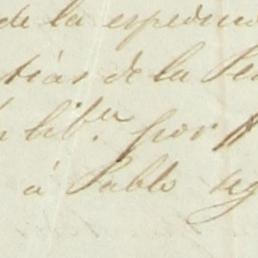 de la espedicio
tias de la Pe
libr.a por
á Pablo seg